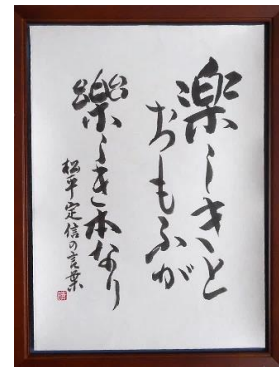 楽しきと
おもふが
樂しき本なり
松平定信の言葉